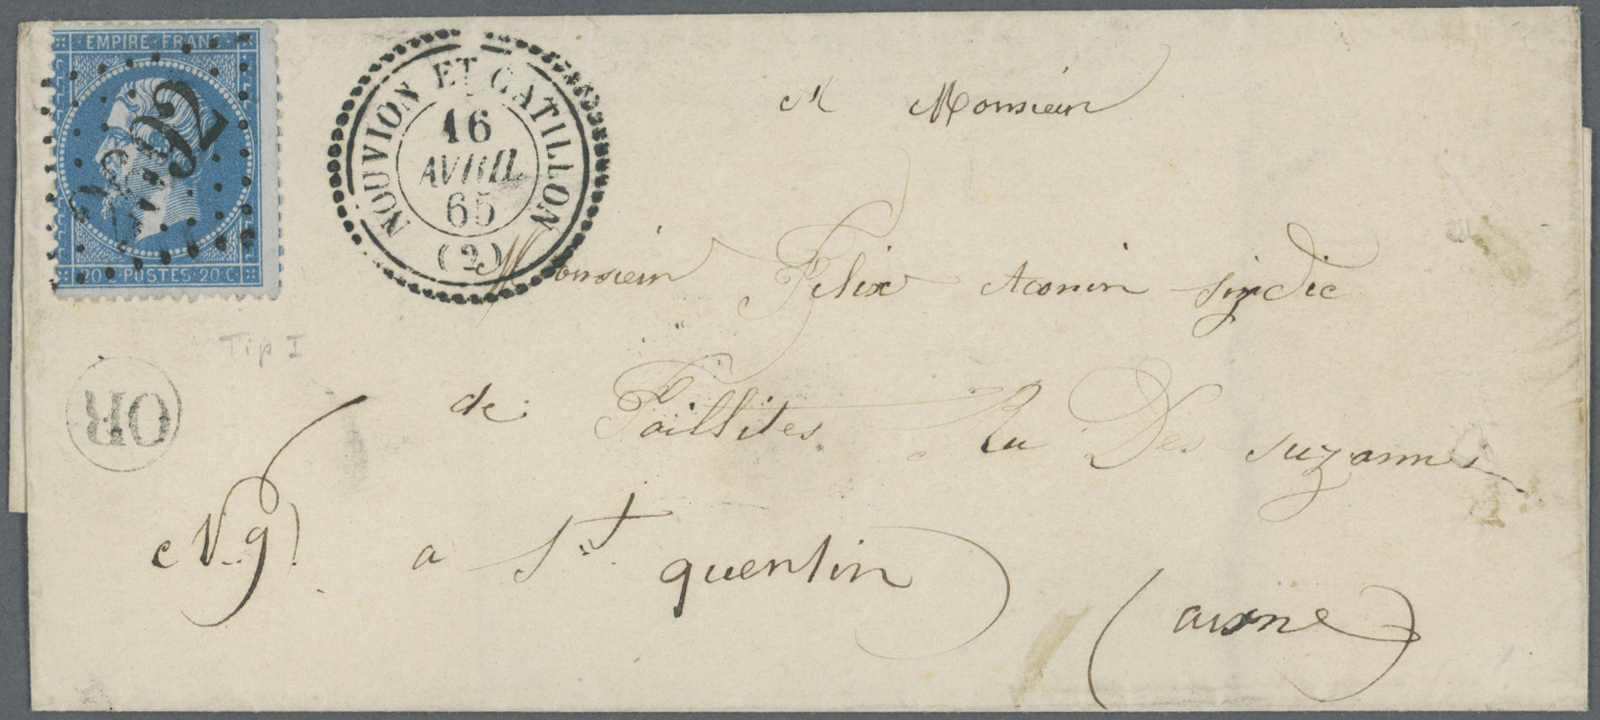 EMPIRE FRANC
20 C POSTES 20 C
NOUVION ET CATILLON
16
AVRIL
65
(2)
A Monsieur
Monsieur Felix sindic
de Faillites Ru Des suzannes
a St quentin
(aisne)
Tip I
OR